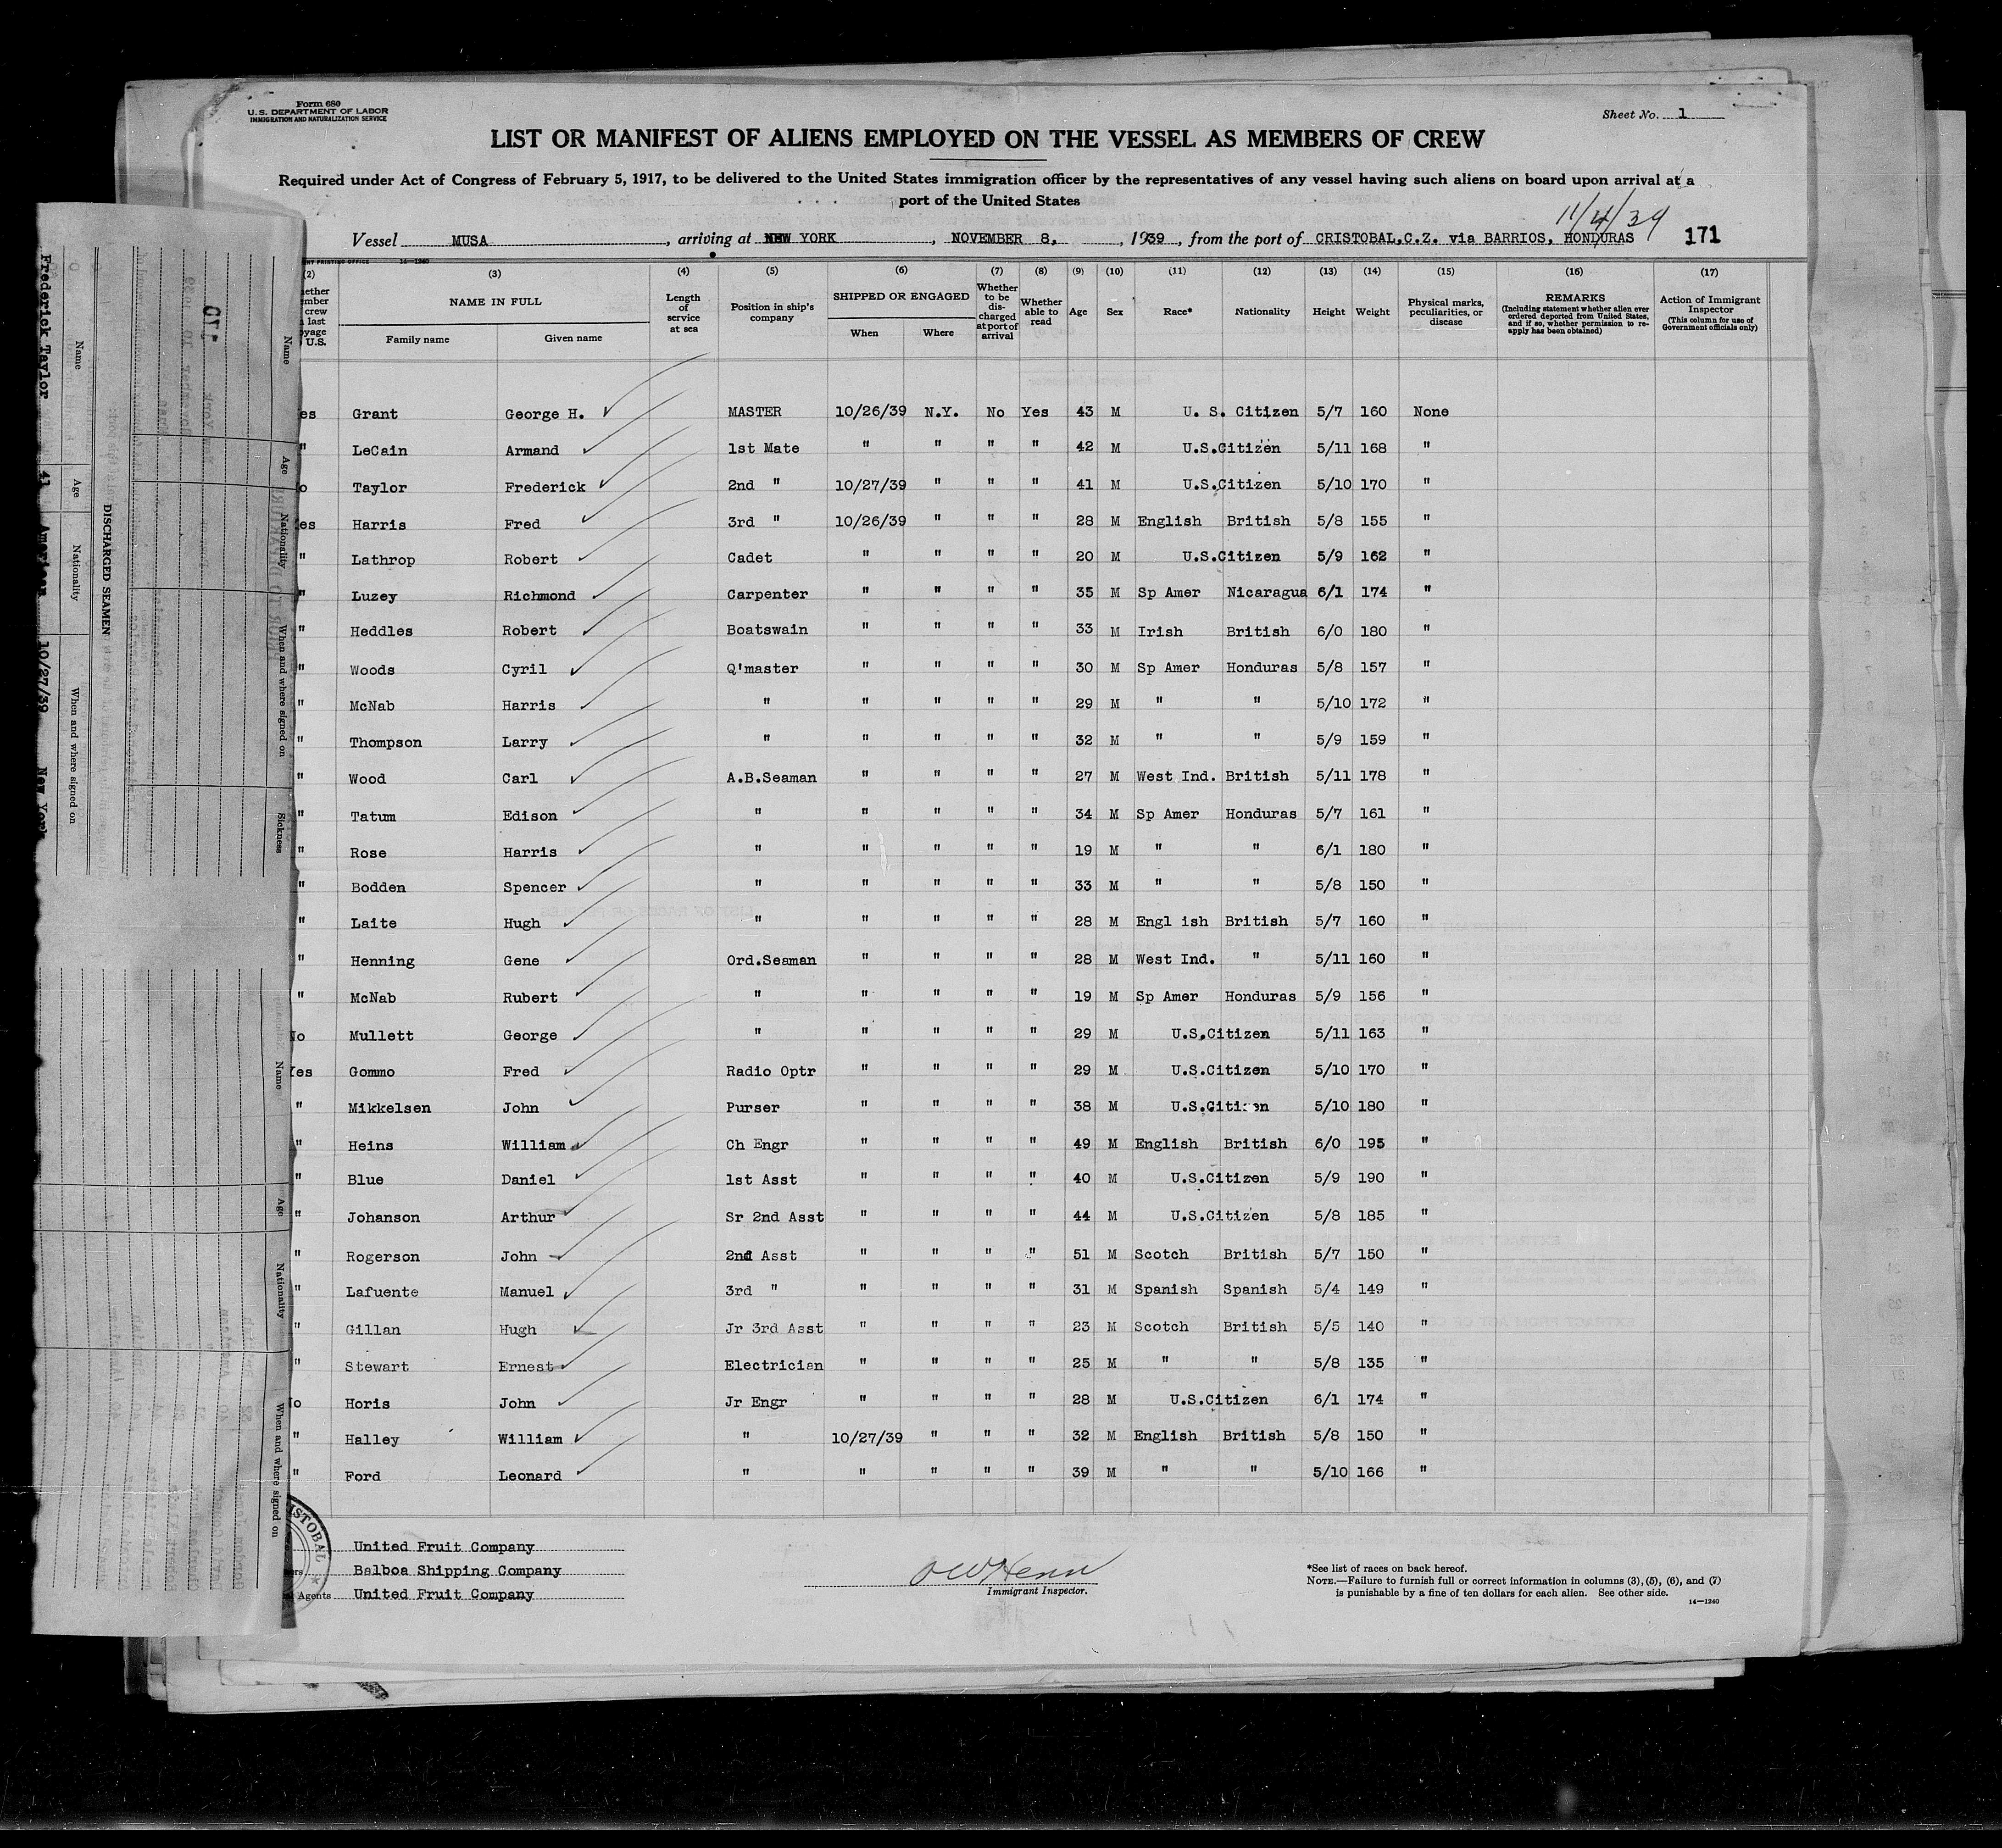 Form 680
U. S. DEPARTMENT OF LABOR
IMMIGRATION AND NATURALIZATION SERVICE
Sheet No. 1
LIST OR MANIFEST OF ALIENS EMPLOYED ON THE VESSEL AS MEMBERS OF CREW
Required under Act of Congress of February 5, 1917, to be delivered to the United States immigration officer by the representatives of any vessel having such aliens on board upon arrival at a
port of the United States
11/4/39
Vessel MUSA, arriving at NEW YORK, NOVEMBER 8, 1939, from the port of CRISTOBAL,C.Z. via BARRIOS, HONDURAS 171
(2) (3) (4) (5) (6) (7) (8) (9) (10) (11) (12) (13) (14) (15) (16) (17)
NAME IN FULL Family name Given name
Length of service at sea
Position in ship's company
SHIPPED OR ENGAGED When Where
Whether to be discharged at port of arrival
Whether able to read
Age Sex Race* Nationality Height Weight
Physical marks, peculiarities, or disease
REMARKS (Including statement whether alien ever ordered deported from United States, and if so, whether permission to re-apply has been obtained)
Action of Immigrant Inspector (This column for use of Government officials only)
es Grant George H. MASTER 10/26/39 N.Y. No Yes 43 M U. S. Citizen 5/7 160 None
" LeCain Armand 1st Mate " " " " 42 M U.S.Citizen 5/11 168 "
o Taylor Frederick 2nd " 10/27/39 " " " 41 M U.S.Citizen 5/10 170 "
es Harris Fred 3rd " 10/26/39 " " " 28 M English British 5/8 155 "
" Lathrop Robert Cadet " " " " 20 M U.S.Citizen 5/9 162 "
" Luzey Richmond Carpenter " " " " 35 M Sp Amer Nicaragua 6/1 174 "
" Heddles Robert Boatswain " " " " 33 M Irish British 6/0 180 "
" Woods Cyril Q'master " " " " 30 M Sp Amer Honduras 5/8 157 "
" McNab Harris " " " " " 29 M " " 5/10 172 "
" Thompson Larry " " " " " 32 M " " 5/9 159 "
" Wood Carl A.B.Seaman " " " " 27 M West Ind. British 5/11 178 "
" Tatum Edison " " " " " 34 M Sp Amer Honduras 5/7 161 "
" Rose Harris " " " " " 19 M " " 6/1 180 "
" Bodden Spencer " " " " " 33 M " " 5/8 150 "
" Laite Hugh " " " " " 28 M Engl ish British 5/7 160 "
" Henning Gene Ord.Seaman " " " " 28 M West Ind. " 5/11 160 "
" McNab Rubert " " " " " 19 M Sp Amer Honduras 5/9 156 "
No Mullett George " " " " " 29 M U.S.Citizen 5/11 163 "
Yes Gommo Fred Radio Optr " " " " 29 M U.S.Citizen 5/10 170 "
" Mikkelsen John Purser " " " " 38 M U.S.Citizen 5/10 180 "
" Heins William Ch Engr " " " " 49 M English British 6/0 195 "
" Blue Daniel 1st Asst " " " " 40 M U.S.Citizen 5/9 190 "
" Johanson Arthur Sr 2nd Asst " " " " 44 M U.S.Citizen 5/8 185 "
" Rogerson John 2nd Asst " " " " 51 M Scotch British 5/7 150 "
" Lafuente Manuel 3rd " " " " " 31 M Spanish Spanish 5/4 149 "
" Gillan Hugh Jr 3rd Asst " " " " 23 M Scotch British 5/5 140 "
" Stewart Ernest Electrician " " " " 25 M " " 5/8 135 "
No Horis John Jr Engr " " " " 28 M U.S.Citizen 6/1 174 "
" Halley William " 10/27/39 " " " 32 M English British 5/8 150 "
" Ford Leonard " " " " " 39 M " " 5/10 166 "
United Fruit Company
Balboa Shipping Company
Agents United Fruit Company
ISTOBAL
Immigrant Inspector.
*See list of races on back hereof.
NOTE.—Failure to furnish full or correct information in columns (3), (5), (6), and (7)
is punishable by a fine of ten dollars for each alien. See other side.
14—1240
DISCHARGED SEAMEN
Name Age Nationality When and where signed on
Frederick Taylor 41 American 10/27/39 New York
Name Age Nationality When and where signed on Sickness
Name Age Nationality When and where signed on